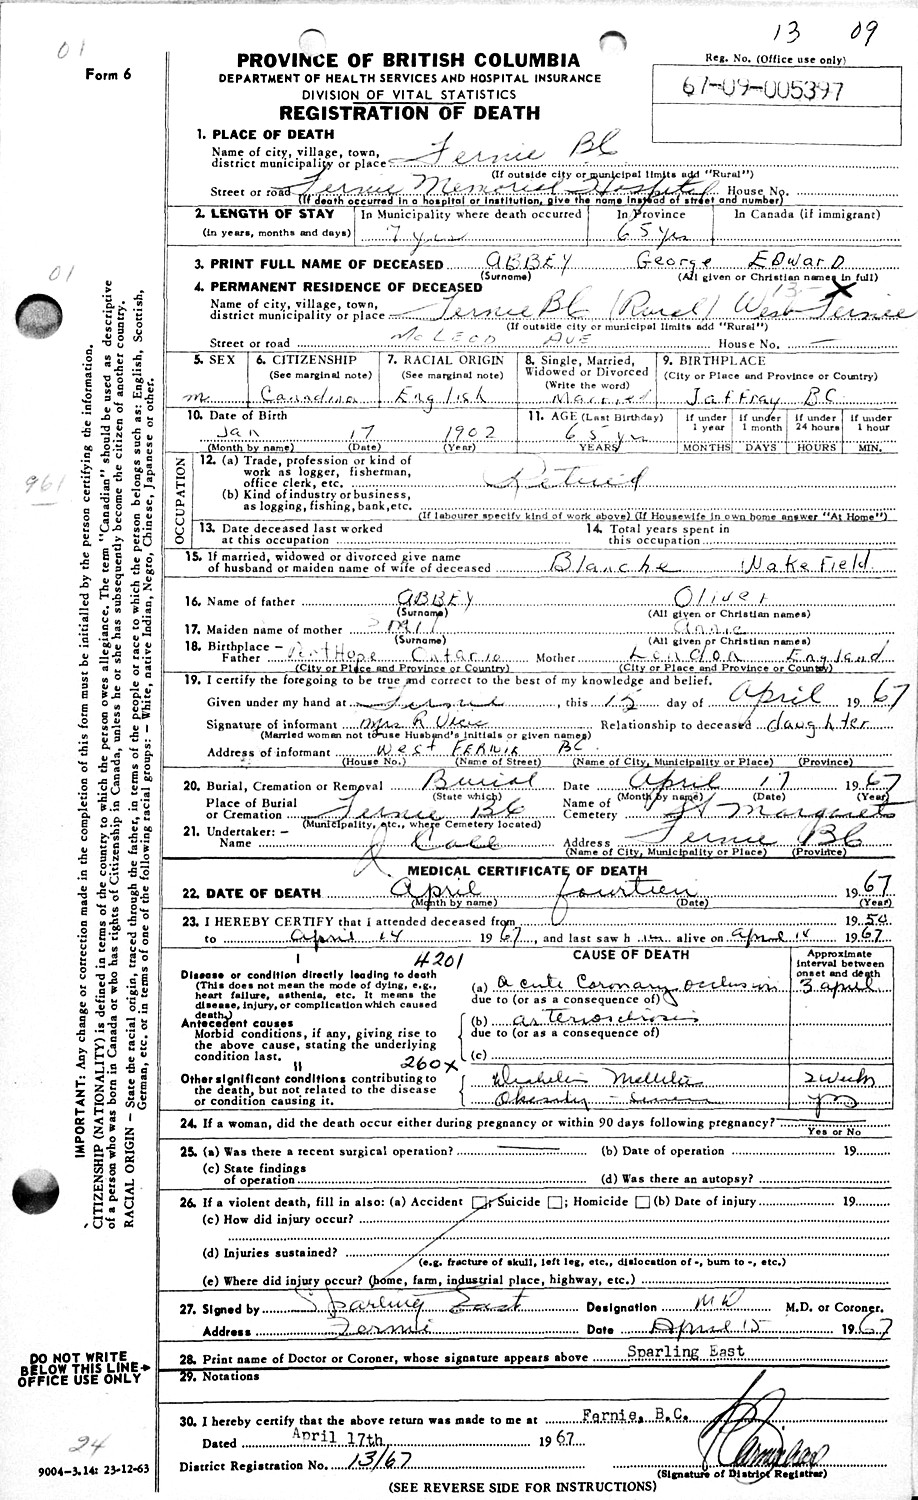 13 09
01
Form 6
PROVINCE OF BRITISH COLUMBIA
DEPARTMENT OF HEALTH SERVICES AND HOSPITAL INSURANCE
DIVISION OF VITAL STATISTICS
REGISTRATION OF DEATH
Reg. No. (Office use only)
67-09-005397
1. PLACE OF DEATH
Name of city, village, town,
district municipality or place Fernie BC
(If outside city or municipal limits add "Rural")
Street or road Fernie Memorial Hospital House No.
(If death occurred in a hospital or institution, give the name instead of street and number)
2. LENGTH OF STAY
(in years, months and days)
In Municipality where death occurred
7 yrs
In Province
65 yrs
In Canada (if immigrant)
3. PRINT FULL NAME OF DECEASED ABBEY George EDWARD
(Surname) (All given or Christian names in full)
01
4. PERMANENT RESIDENCE OF DECEASED 13- X
Name of city, village, town,
district municipality or place Fernie BC (Rural) West Fernie
(If outside city or municipal limits add "Rural")
Street or road McLEOD AVE House No. —
5. SEX
m
6. CITIZENSHIP
(See marginal note)
Canadian
7. RACIAL ORIGIN
(See marginal note)
English
8. Single, Married,
Widowed or Divorced
(Write the word)
Married
9. BIRTHPLACE
(City or Place and Province or Country)
Jaffray BC
10. Date of Birth
Jan 17 1902
(Month by name) (Date) (Year)
11. AGE (Last Birthday)
65 yrs
YEARS
if under 1 year
MONTHS
if under 1 month
DAYS
if under 24 hours
HOURS
if under 1 hour
MIN.
OCCUPATION
12. (a) Trade, profession or kind of
work as logger, fisherman,
office clerk, etc. Retired
(b) Kind of industry or business,
as logging, fishing, bank, etc.
(If labourer specify kind of work above) (If Housewife in own home answer "At Home")
961
13. Date deceased last worked
at this occupation
14. Total years spent in
this occupation
15. If married, widowed or divorced give name
of husband or maiden name of wife of deceased Blanche Wakefield
16. Name of father ABBEY Oliver
(Surname) (All given or Christian names)
17. Maiden name of mother Annie
(Surname) (All given or Christian names)
18. Birthplace —
Father Port Hope Ontario Mother London England
(City or Place and Province or Country) (City or Place and Province or Country)
19. I certify the foregoing to be true and correct to the best of my knowledge and belief.
Given under my hand at Fernie, this 15 day of April 1967
Signature of informant Mrs R Relationship to deceased daughter
(Married women not to use Husband's initials or given names)
Address of informant West FERNIE BC
(House No.) (Name of Street) (Name of City, Municipality or Place) (Province)
20. Burial, Cremation or Removal Burial Date April 17 1967
(State which) (Month by name) (Date) (Year)
Place of Burial
or Cremation Fernie BC
(Municipality, etc., where Cemetery located)
Name of
Cemetery St Margarets
21. Undertaker: —
Name Address Fernie BC
(Name of City, Municipality or Place) (Province)
MEDICAL CERTIFICATE OF DEATH
22. DATE OF DEATH April fourteen 1967
(Month by name) (Date) (Year)
23. I HEREBY CERTIFY that I attended deceased from 1954
to April 14 1967, and last saw him alive on April 14 1967
I
4201
CAUSE OF DEATH
Approximate
interval between
onset and death
Disease or condition directly leading to death
(This does not mean the mode of dying, e.g.,
heart failure, asthenia, etc. It means the
disease, injury, or complication which caused
death)
(a) Acute Coronary occlusion 3
due to (or as a consequence of)
Antecedent causes
Morbid conditions, if any, giving rise to
the above cause, stating the underlying
condition last.
(b) arteriosclerosis
due to (or as a consequence of)
(c)
II
260x
Other significant conditions contributing to
the death, but not related to the disease
or condition causing it.
Diabetes Mellitus 2 weeks
Obesity — yrs
24. If a woman, did the death occur either during pregnancy or within 90 days following pregnancy?
Yes or No
25. (a) Was there a recent surgical operation? (b) Date of operation 19
(c) State findings
of operation (d) Was there an autopsy?
26. If a violent death, fill in also: (a) Accident ☐; Suicide ☐; Homicide ☐ (b) Date of injury 19
(c) How did injury occur?
(d) Injuries sustained?
(e.g. fracture of skull, left leg, etc., dislocation of -, burn to -, etc.)
(e) Where did injury occur? (home, farm, industrial place, highway, etc.)
27. Signed by Sparling East Designation MD M.D. or Coroner.
Address Fernie Date April 15 1967
28. Print name of Doctor or Coroner, whose signature appears above Sparling East
29. Notations
30. I hereby certify that the above return was made to me at Fernie, B.C.
Dated April 17th 1967
District Registration No. 13/67
(Signature of District Registrar)
(SEE REVERSE SIDE FOR INSTRUCTIONS)
IMPORTANT: Any change or correction made in the completion of this form must be initialled by the person certifying the information.
CITIZENSHIP (NATIONALITY) is defined in terms of the country to which the person owes allegiance. The term "Canadian" should be used as descriptive
of a person who was born in Canada or who has rights of Citizenship in Canada, unless he or she has subsequently become the citizen of another country.
RACIAL ORIGIN — State the racial origin, traced through the father, in terms of the people or race to which the person belongs such as: English, Scottish,
German, etc. or in terms of one of the following racial groups: — White, native Indian, Negro, Chinese, Japanese or other.
DO NOT WRITE
BELOW THIS LINE
OFFICE USE ONLY
24
9004-3.14: 23-12-63